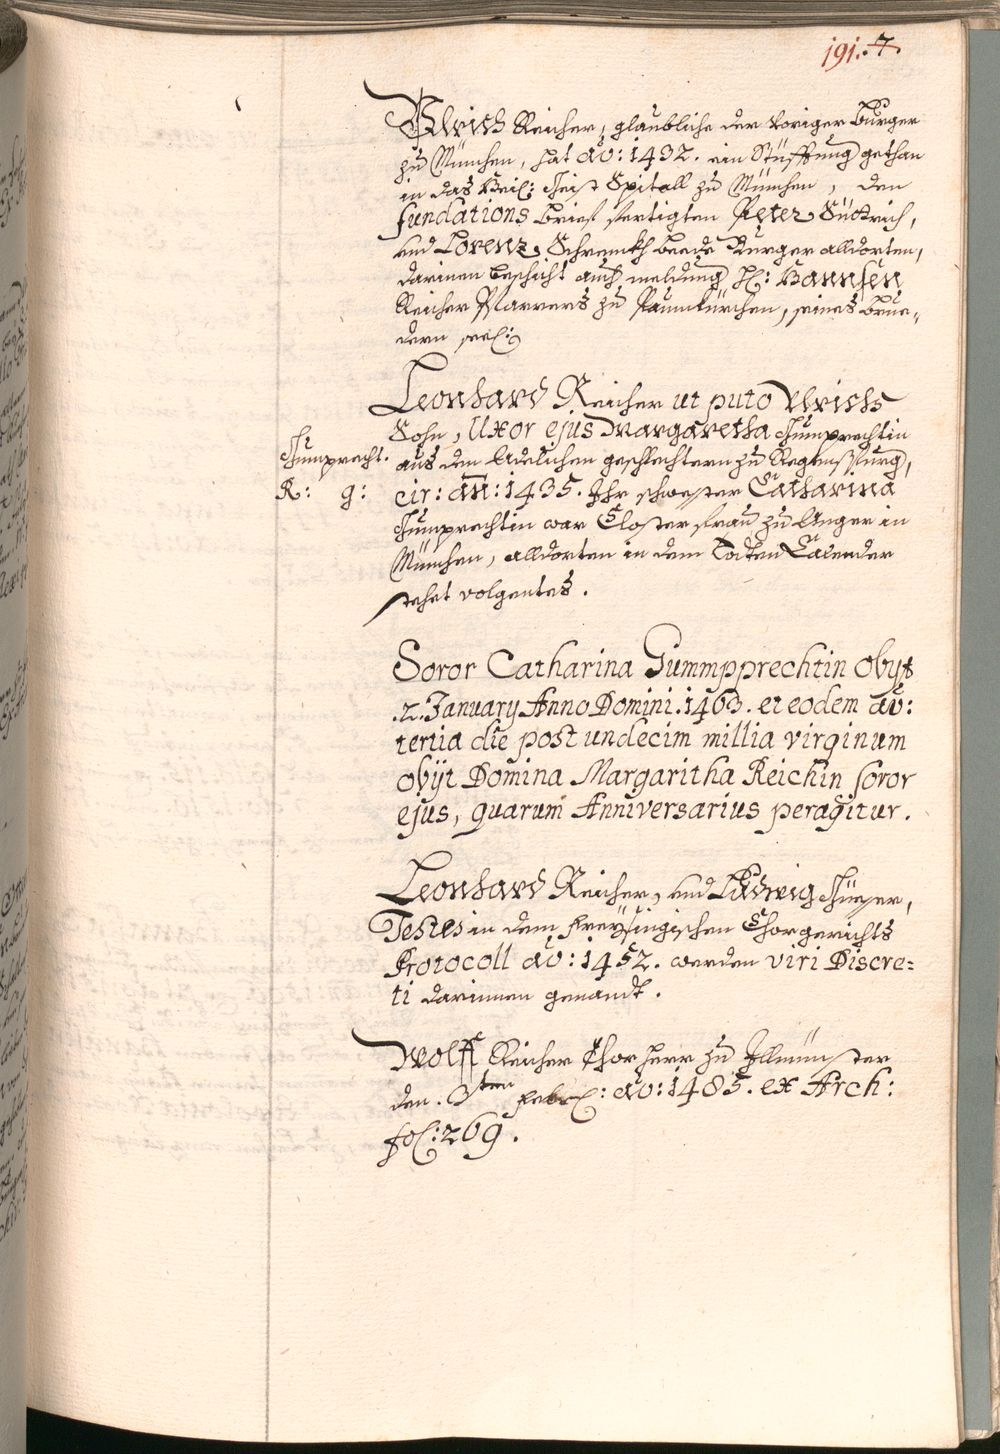 191. 7.
Ulrich Reicher, glaubliche der voriger Burger
zu München, hat aō: 1432. ein Stüfftung gethan
in das Heil: Geist Spitall zu München, den
fundations brieff fertigten Peter Südtrich,
und Lorenz Schrenckh beede Burger alldorten,
darinen beschicht auch meldung H: Hannsen
Reicher Pfarrers zu Paumkürchen, seines brue„
dern seel:
Leonhard Reicher ut puto Ulrichs
Sohn, Uxor ejus Margaretha Gumprechtin
Gumprecht.
aus den Adelichen geschlechtern zu Regenspurg,
R: g:
cir: añ: 1435. Ihr schwester Catharina
Gumprechtin war Closter frau zu Anger in
München, alldorten in dem Todten Calender
stehet volgentes.
Soror Catharina Gummpprechtin obyt
.2. January Anno Domini. 1463. et eodem aō:
tertia die post undecim millia virginum
obijt Domina Margaritha Reichin soror
ejus, quarum Anniversarius peragitur.
Leonhard Reicher, und Ludwig
Testes in dem freysingischen Chorgerichts
Protocoll aō: 1452. werden viri Discre=
ti darinnen genandt.
Wolff Reicher Chorherr zu Illmünster
den. 3ten Febr: aō: 1485. ex Arch:
fol: 269.